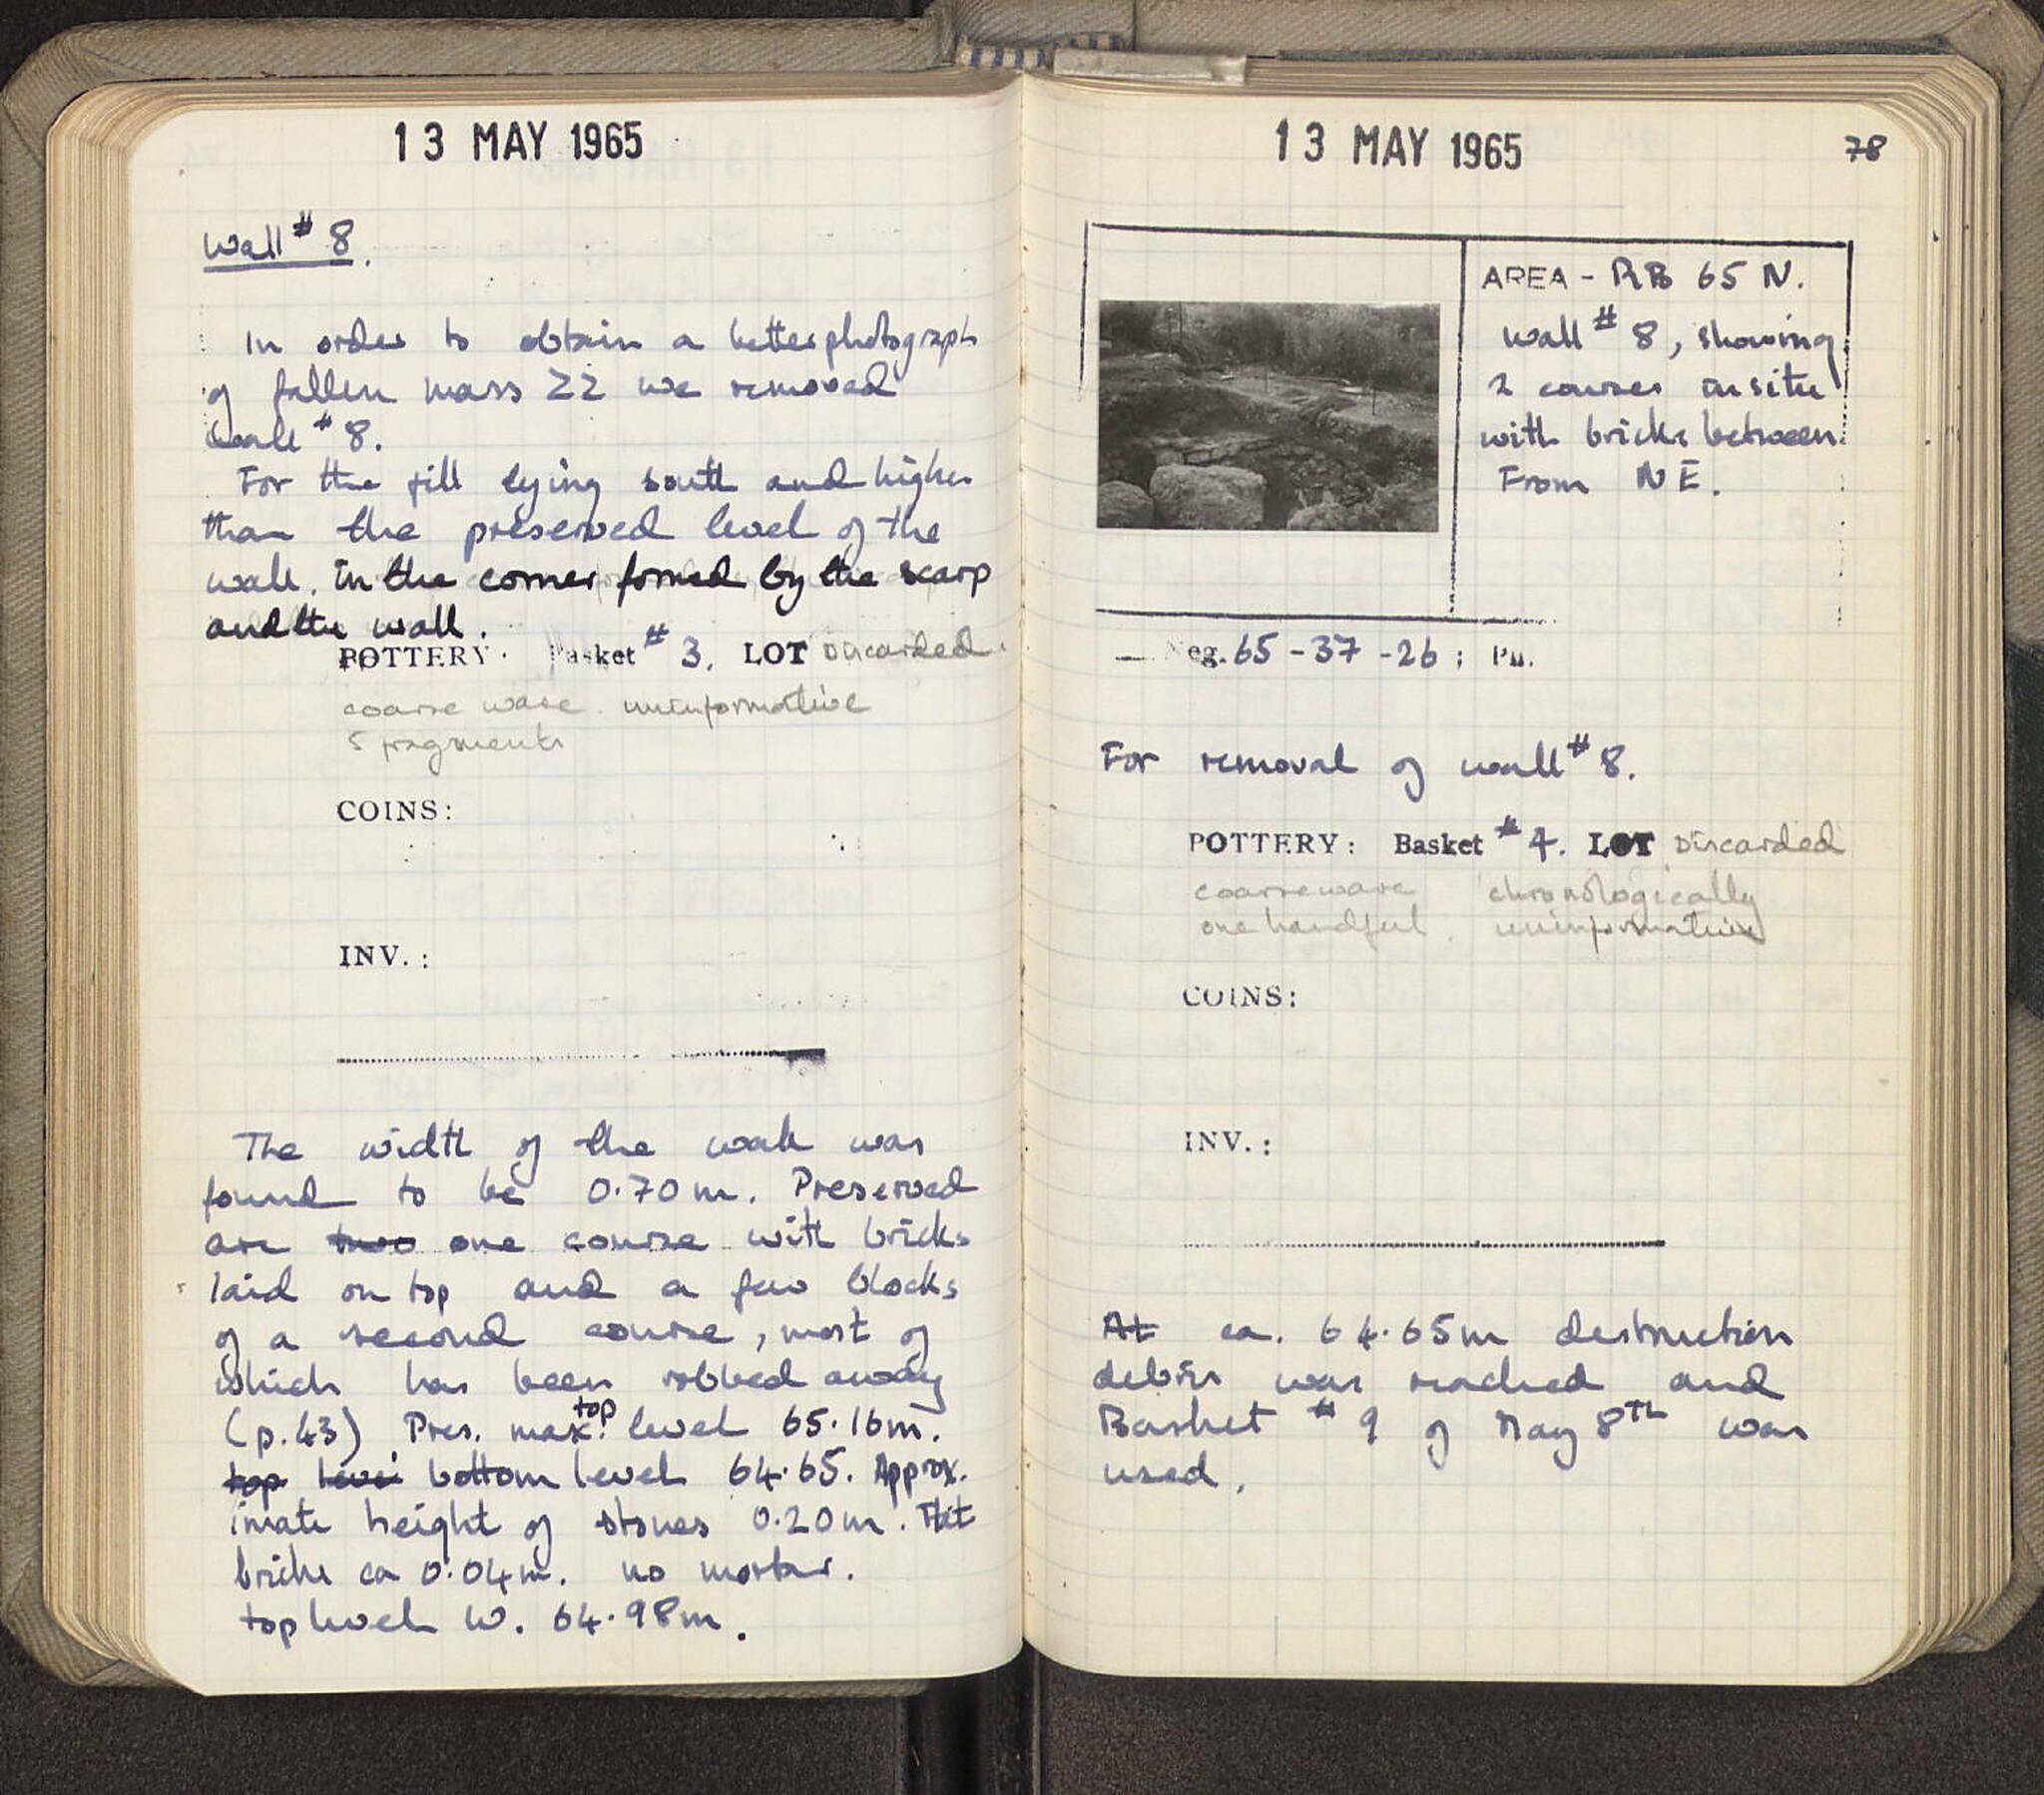 13 MAY 1965
Wall # 8.
In order to obtain a better photograph
of fallen mass ZZ we removed
Wall # 8.
For the fill lying south and higher
than the preserved level of the
wall. In the corner formed by the scarp
and the wall.
POTTERY: Basket # 3. LOT Discarded.
coarse ware. uninformative
5 fragments
COINS:
INV.:
The width of the wall was
found to be 0.70m. Preserved
are two one course with bricks
laid on top and a few blocks
of a second course, most of
which has been robbed away
(p.43) Pres. max. top level 65.16m.
top level bottom level 64.65. Approx.
imate height of stones 0.20m.
bricks ca 0.04m. no mortar.
top level W. 64.98m.
13 MAY 1965
78
AREA - RB 65 N.
Wall # 8, showing
2 courses in situ
with bricks between.
From NE.
Neg. 65-37-26; PH.
For removal of wall # 8.
POTTERY: Basket # 4. LOT Discarded
coarse ware chronologically
one handful. uninformative
COINS:
INV.:
At ca. 64.65m destruction
debris was reached and
Basket # 9 of May 8TH was
used.